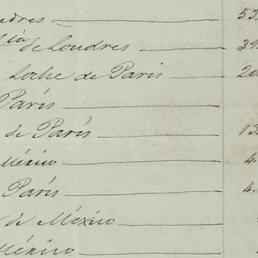 ndres 53
de Londres 39
Loche de Paris 20
Paris
de Paris 13
México 4
Paris 4
de México
México